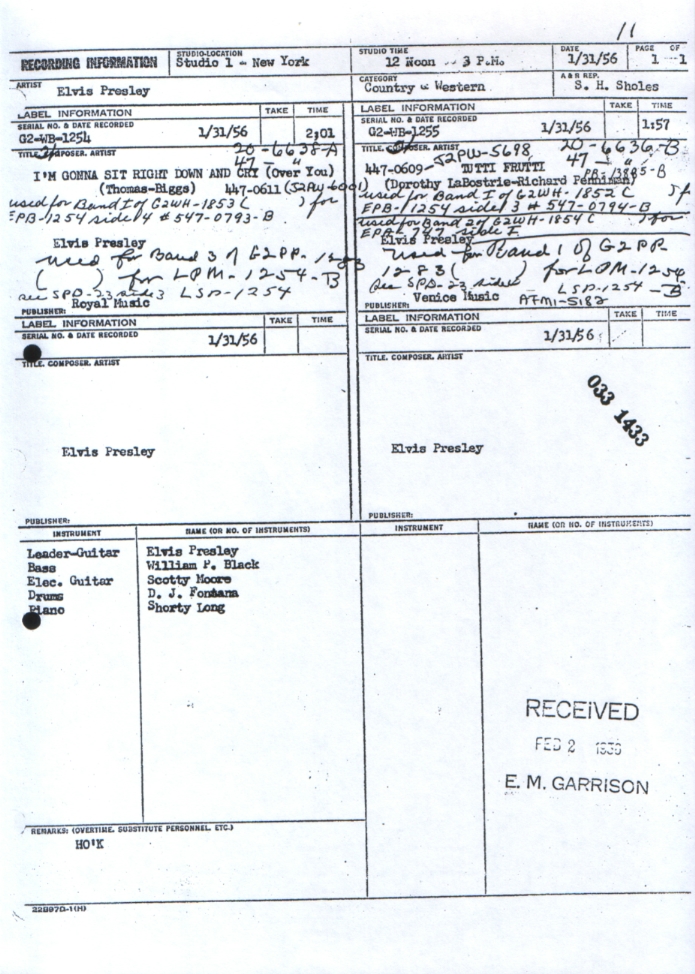 11
RECORDING INFORMATION
STUDIO-LOCATION
Studio 1 - New York
STUDIO TIME
12 Noon -- 3 P.M.
DATE
1/31/56
PAGE OF
1 --1
ARTIST
Elvis Presley
CATEGORY
Country & Western
A & R REP.
S. H. Sholes
LABEL INFORMATION TAKE TIME
SERIAL NO. & DATE RECORDED
G2-WB-1254 1/31/56 2:01
TITLE, COMPOSER, ARTIST
20-6638-A
47 - " "
I'M GONNA SIT RIGHT DOWN AND CRY (Over You)
(Thomas-Biggs) 447-0611
used for Band I of G2WH-1853 ( ) for
EPB-1254 side 4 # 547-0793-B
Elvis Presley
used for Band 3 of G2PP-1283
( ) for LPM-1254-B
see SPD-23 side 3 LSP-1254
PUBLISHER: Royal Music
LABEL INFORMATION TAKE TIME
SERIAL NO. & DATE RECORDED
G2-WB-1255 1/31/56 1:57
TITLE, COMPOSER, ARTIST
20-6636-B
J2PW-5698 47 - "
447-0609- TUTTI FRUTTI
(Dorothy LaBostrie-Richard Penniman)
used for Band I of G2WH-1852 (
EPB-1254 side 3 # 547-0794-B
used for Band 2 of G2WH-1854 ( ) for
EPA 747 side I
Elvis Presley
used for Band 1 of G2PP-
1283 ( ) for LPM-1254
see SPD-23 side LSP-1254 -B
PUBLISHER: Venice Music
LABEL INFORMATION TAKE TIME
SERIAL NO. & DATE RECORDED
1/31/56
TITLE, COMPOSER, ARTIST
Elvis Presley
PUBLISHER:
LABEL INFORMATION TAKE TIME
SERIAL NO. & DATE RECORDED
1/31/56
TITLE, COMPOSER, ARTIST
033 1433
Elvis Presley
PUBLISHER:
INSTRUMENT NAME (OR NO. OF INSTRUMENTS) INSTRUMENT NAME (OR NO. OF INSTRUMENTS)
Leader-Guitar Elvis Presley
Bass William P. Black
Elec. Guitar Scotty Moore
Drums D. J. Fontana
Piano Shorty Long
RECEIVED
FEB 2
E. M. GARRISON
REMARKS: (OVERTIME, SUBSTITUTE PERSONNEL, ETC.)
HO'K